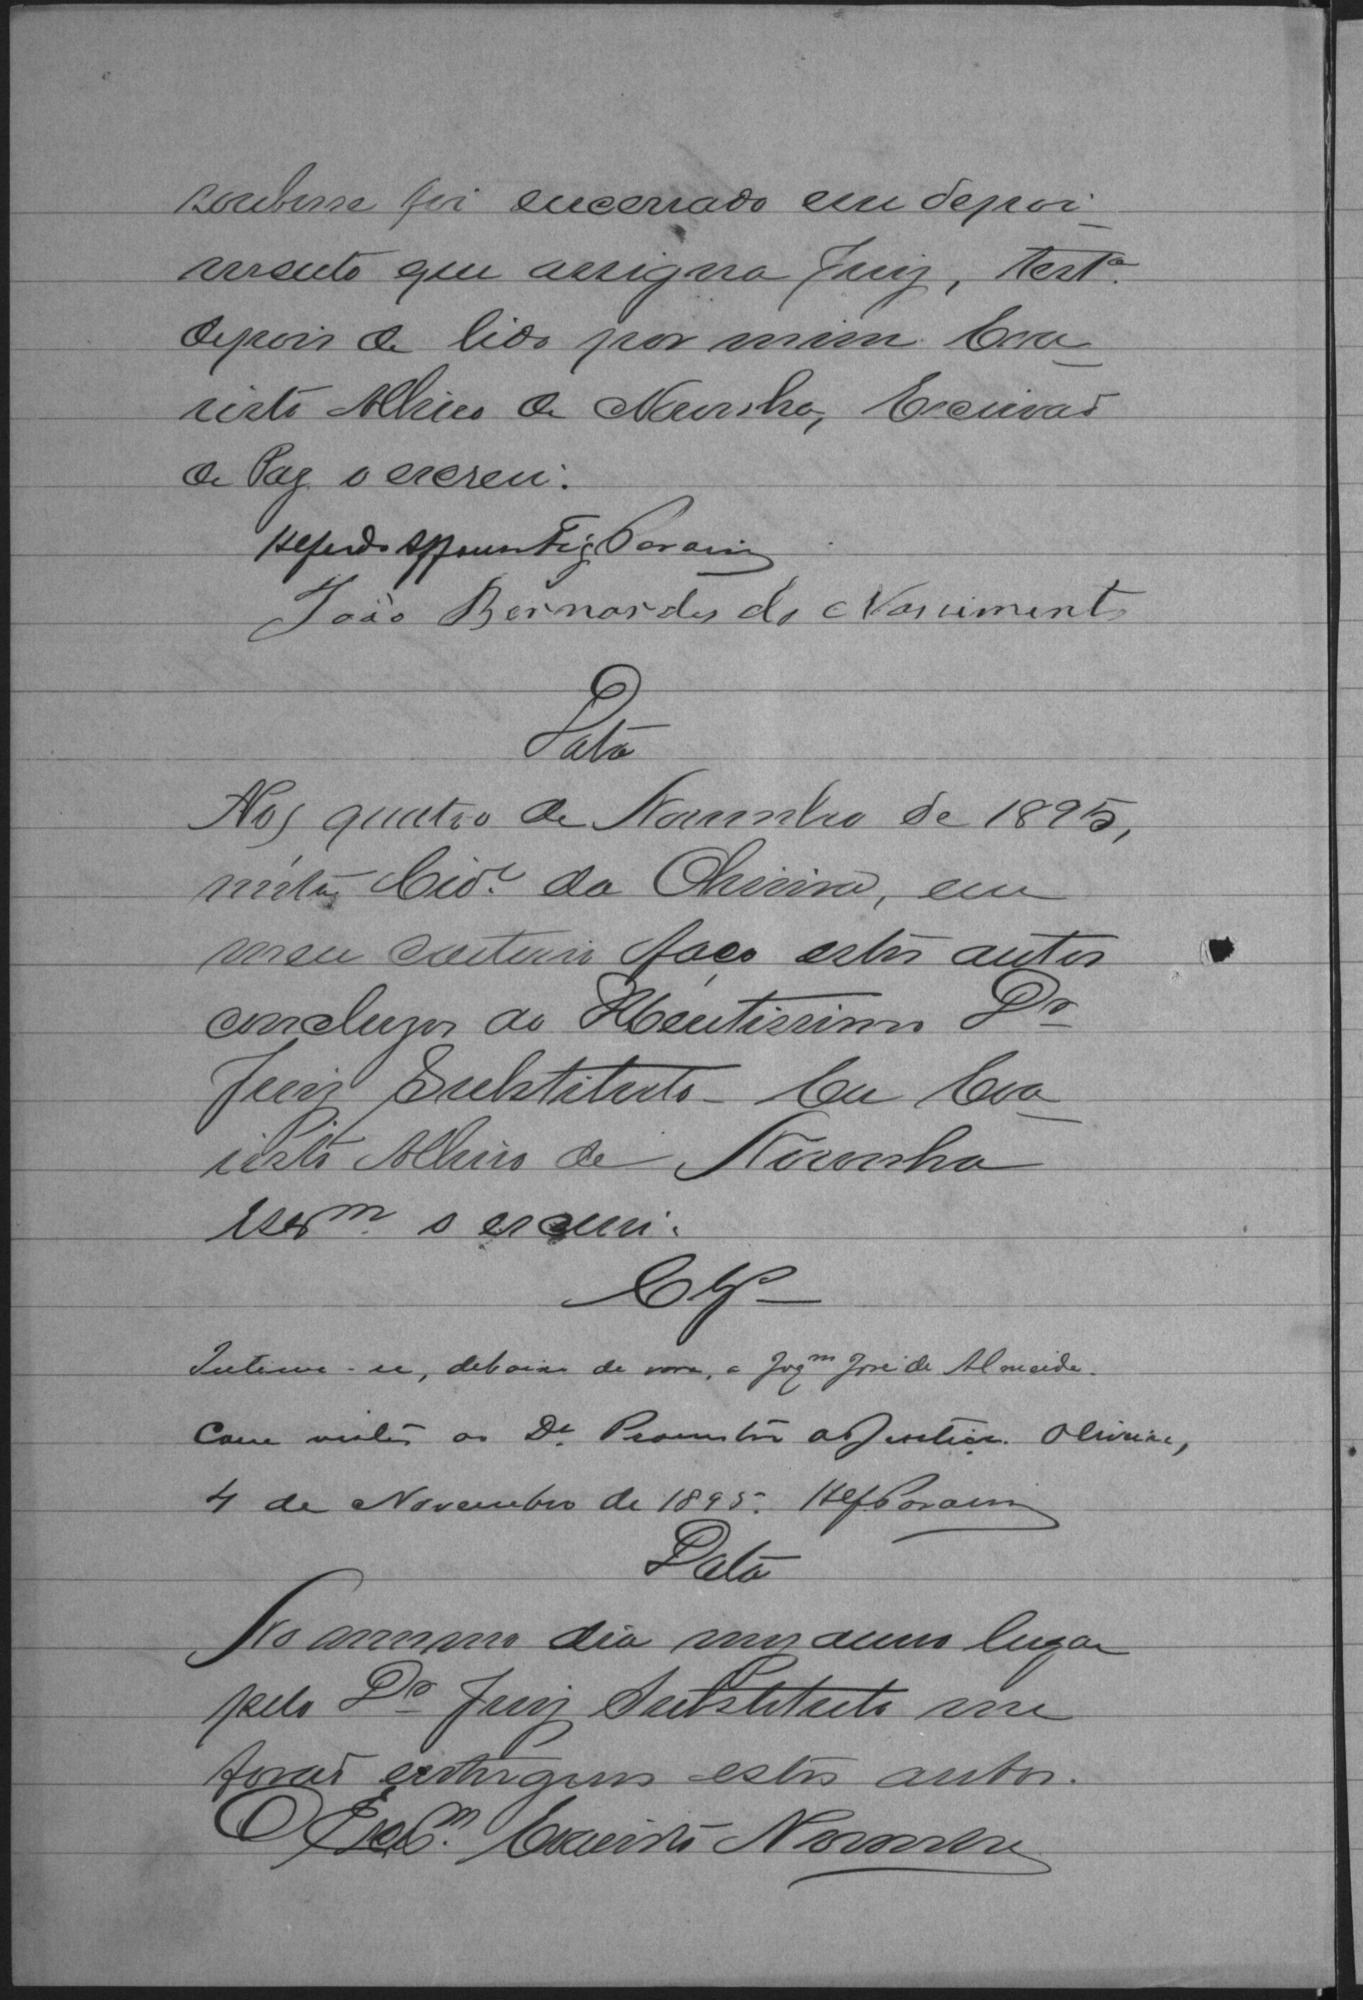 soubesse foi encerrado em depoi-
mento que assigna Juiz, testª
depois de lido por mim Eva-
risto Albino de Noronha, Escrivaõ
de Paz o escrevi.
João Bernardes do Nascimento
Data
Aos quatro de Novembro de 1895,
n'esta Cidᵉ da Oliveira, em
meu cartorio faço estes autos
concluzos ao Meritissimo Dʳ
Juiz Substituto - Eu Eva-
risto Albino de Noronha
Escᵐ o escrevi.
Clsº
Intime-se, debaixo de vara, a Joqᵐ José de Almeida.
Com vista ao Dʳ Promotor da Justiça. Oliveira,
4 de Novembro de 1895.
Data
No mesmo dia mez anno lugar
pelo Dʳ Juiz Substituto me
foraõ entregues estes autos.
O Escᵐ Evaristo Noronha